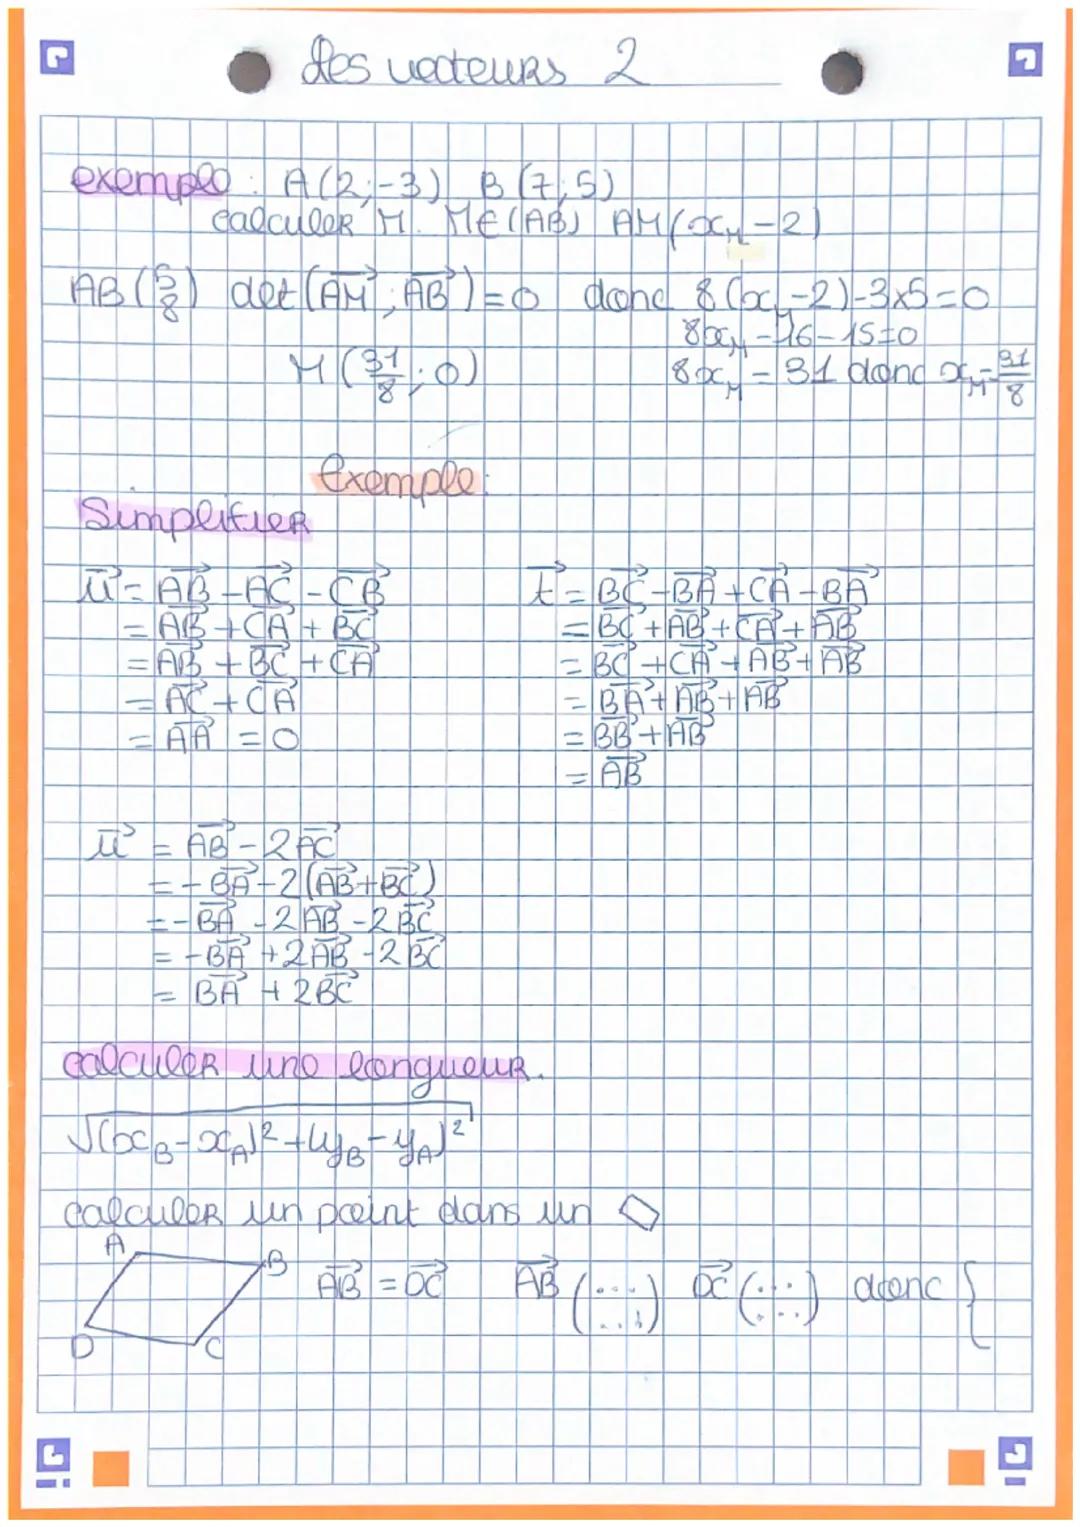 des vecteurs 2
exemple : A(2;-3) B(7;5)
calculer M. M∈(AB) AM(x_M-2)
AB(5/8) det(AM→;AB→)=0 donc 8(x_M-2)-3×5=0
8x_M-16-15=0
M(31/8;0) 8x_M=31 donc x_M=31/8
Exemple:
Simplifier
u→=AB→-AC→-CB→
=AB→+CA→+BC→
=AB→+BC→+CA→
=AC→+CA→
=AA→=0
t→=BC→-BA→+CA→-BA→
=BC→+AB→+CA→+AB→
=BC→+CA→+AB→+AB→
=BA→+AB→+AB→
=BB→+AB→
=AB→
u→=AB→-2AC→
=-BA→-2(AB→+BC→)
=-BA→-2AB→-2BC→
=-BA→+2AB→-2BC→
=BA→+2BC→
calculer une longueur.
√(x_B-x_A)²+(y_B-y_A)²
calculer un point dans un
A B
D C
AB→=DC→ AB→(......) DC→(......) donc {